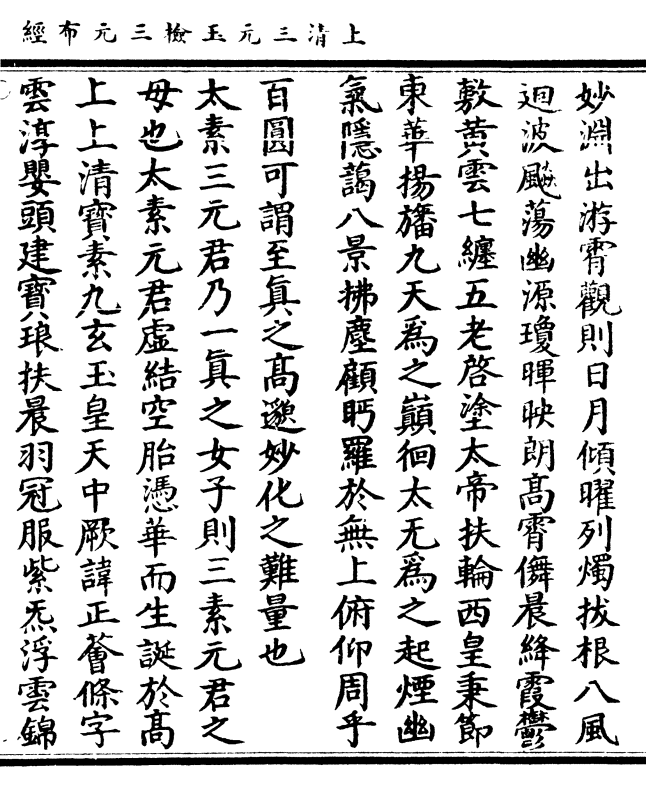 上清三元玉檢三元布經
妙淵出游霄觀則日月傾曜列燭拔根八風
迴波颷蕩幽源瓊暉映朗高霄儛晨絳霞鬱
敷黃雲七纏五老啓塗太帝扶輪西皇秉節
東華揚旛九天爲之巔徊太无爲之起煙幽
氣隱藹八景拂塵顧眄羅於無上俯仰周乎
百圓可謂至眞之高邈妙化之難量也
太素三元君乃一眞之女子則三素元君之
母也太素元君虛結空胎憑華而生誕於高
上上清寶素九玄玉皇天中厥諱正薈條字
雲淳嬰頭建寶琅扶晨羽冠服紫炁浮雲錦